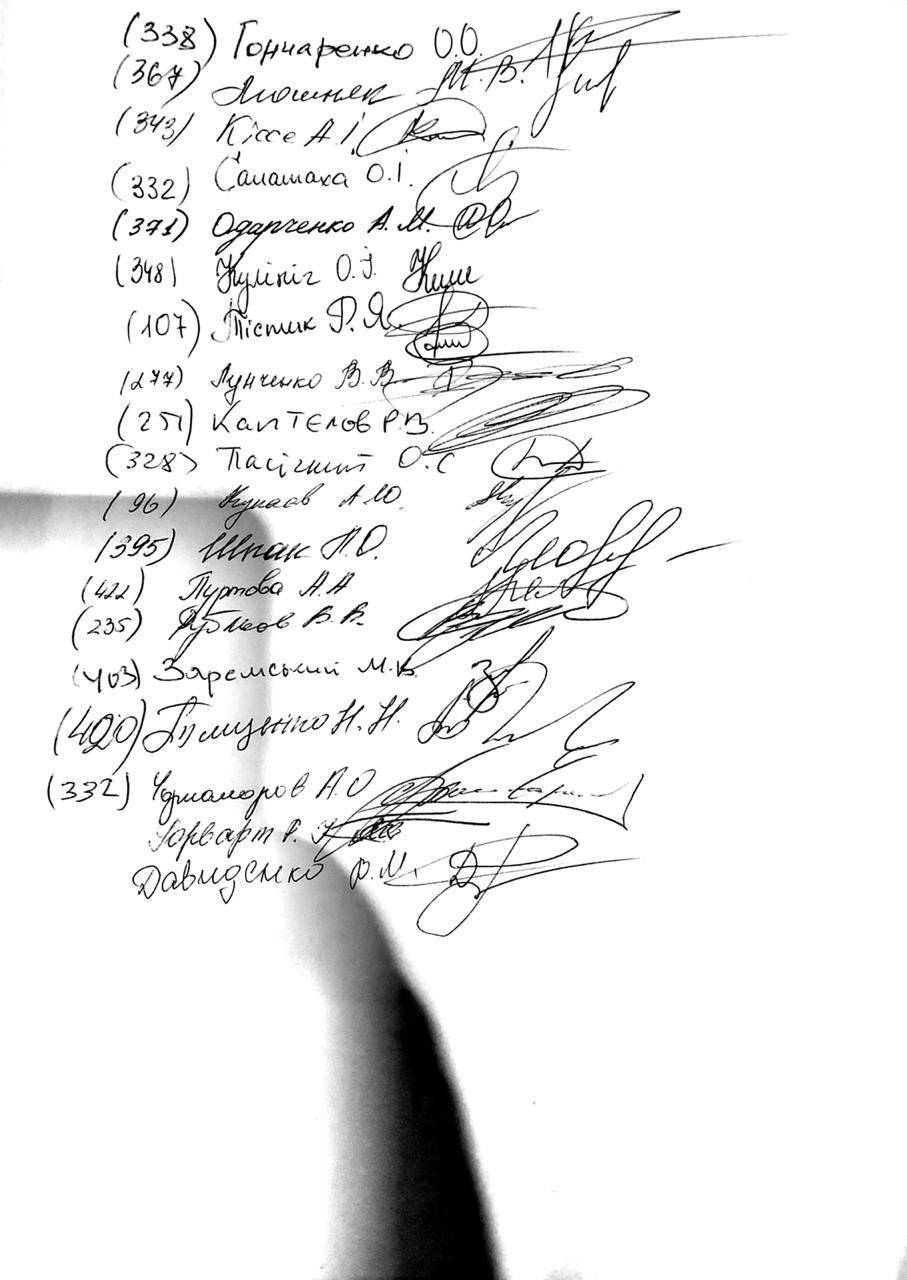 (338) Гончаренко О.О.
(367) М.В.
(343) Кіссе А.І.
(332) Саламаха О.І.
(371) Одарченко А.М.
(348) Кулініч О.І.
(107) Пістик Р.Я.
(277) Лунченко В.В.
(251) Каптєлов Р.В.
(328) Пасічний О.С
(96) Кунаєв А.Ю.
(395) Шпак Л.О.
(422) Пуртова А.А
(235) В.В.
(403) Заремський М.В.
(420) Н.Н.
(332) Чорноморов А.О
Горват Р.
Давиденко В.М.